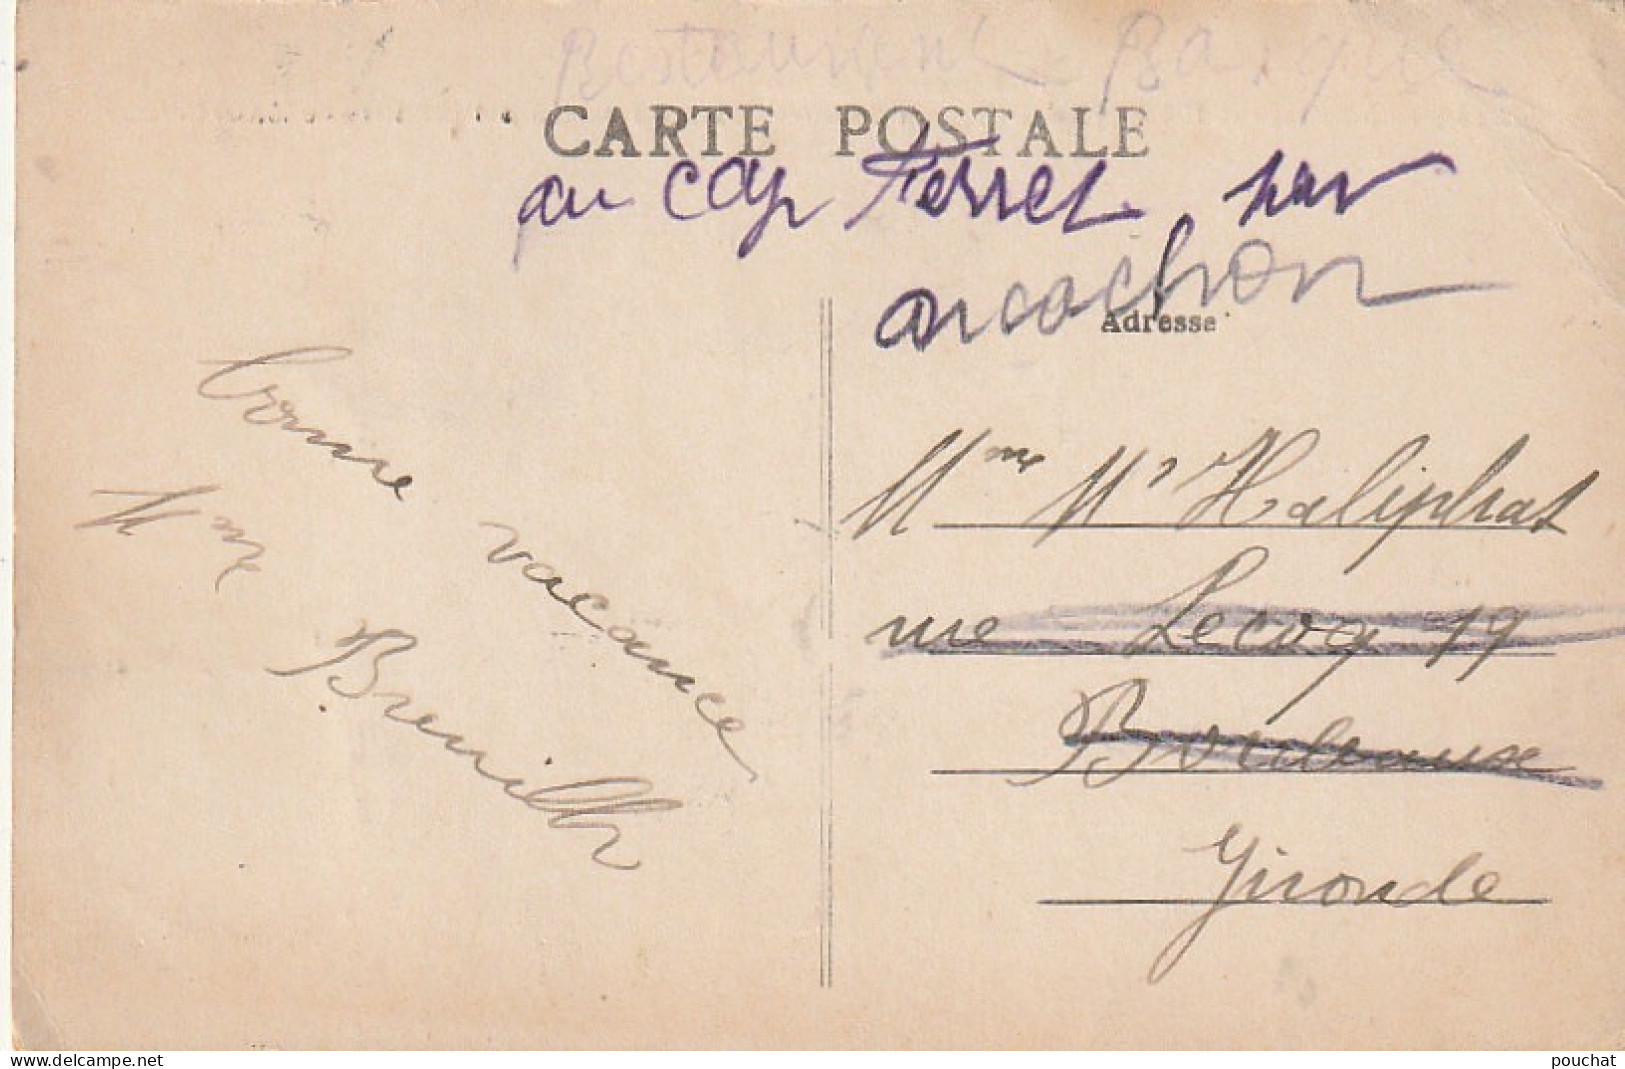 Restaurant Basque
CARTE POSTALE
au Cap Ferret par
arcachon
Adresse
bonne vacance
Mme Breuilh
Mme Mr Haliphat
rue Lecoq 19
Bordeaux
Gironde
www.delcampe.net
pouchat